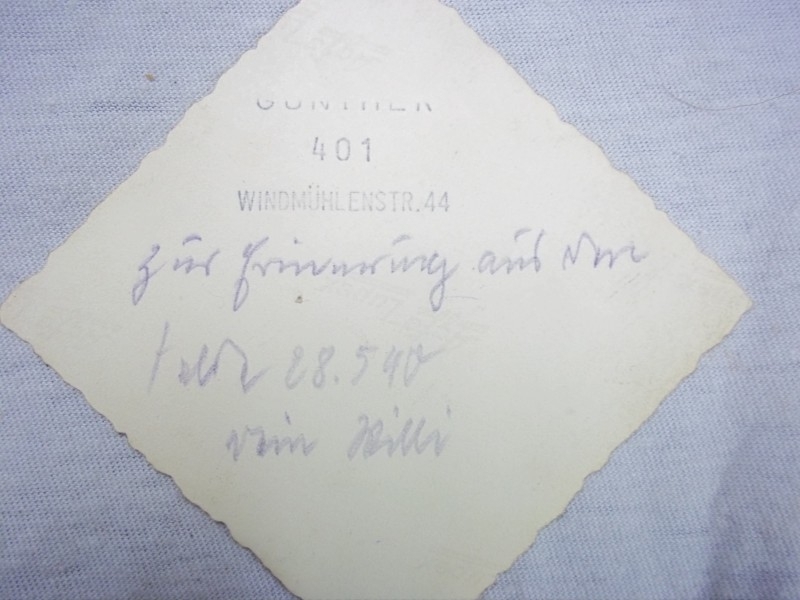 GÜNTHER
401
WINDMÜHLENSTR.44
zur Erinnerung aus dem
Felde 28.5 40
Dein Willi